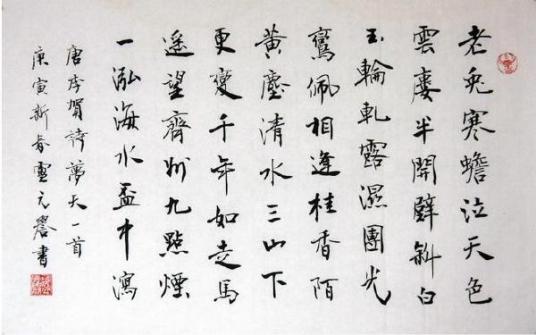 老兔寒蟾泣天色
雲婁半開壁斜白
玉輪軋露濕團光
鸞佩相逢桂香陌
黃塵清水三山下
更變千年如走馬
遥望齊州九點煙
一泓海水盃中瀉
唐李賀詩夢天一首
庚寅新春元書